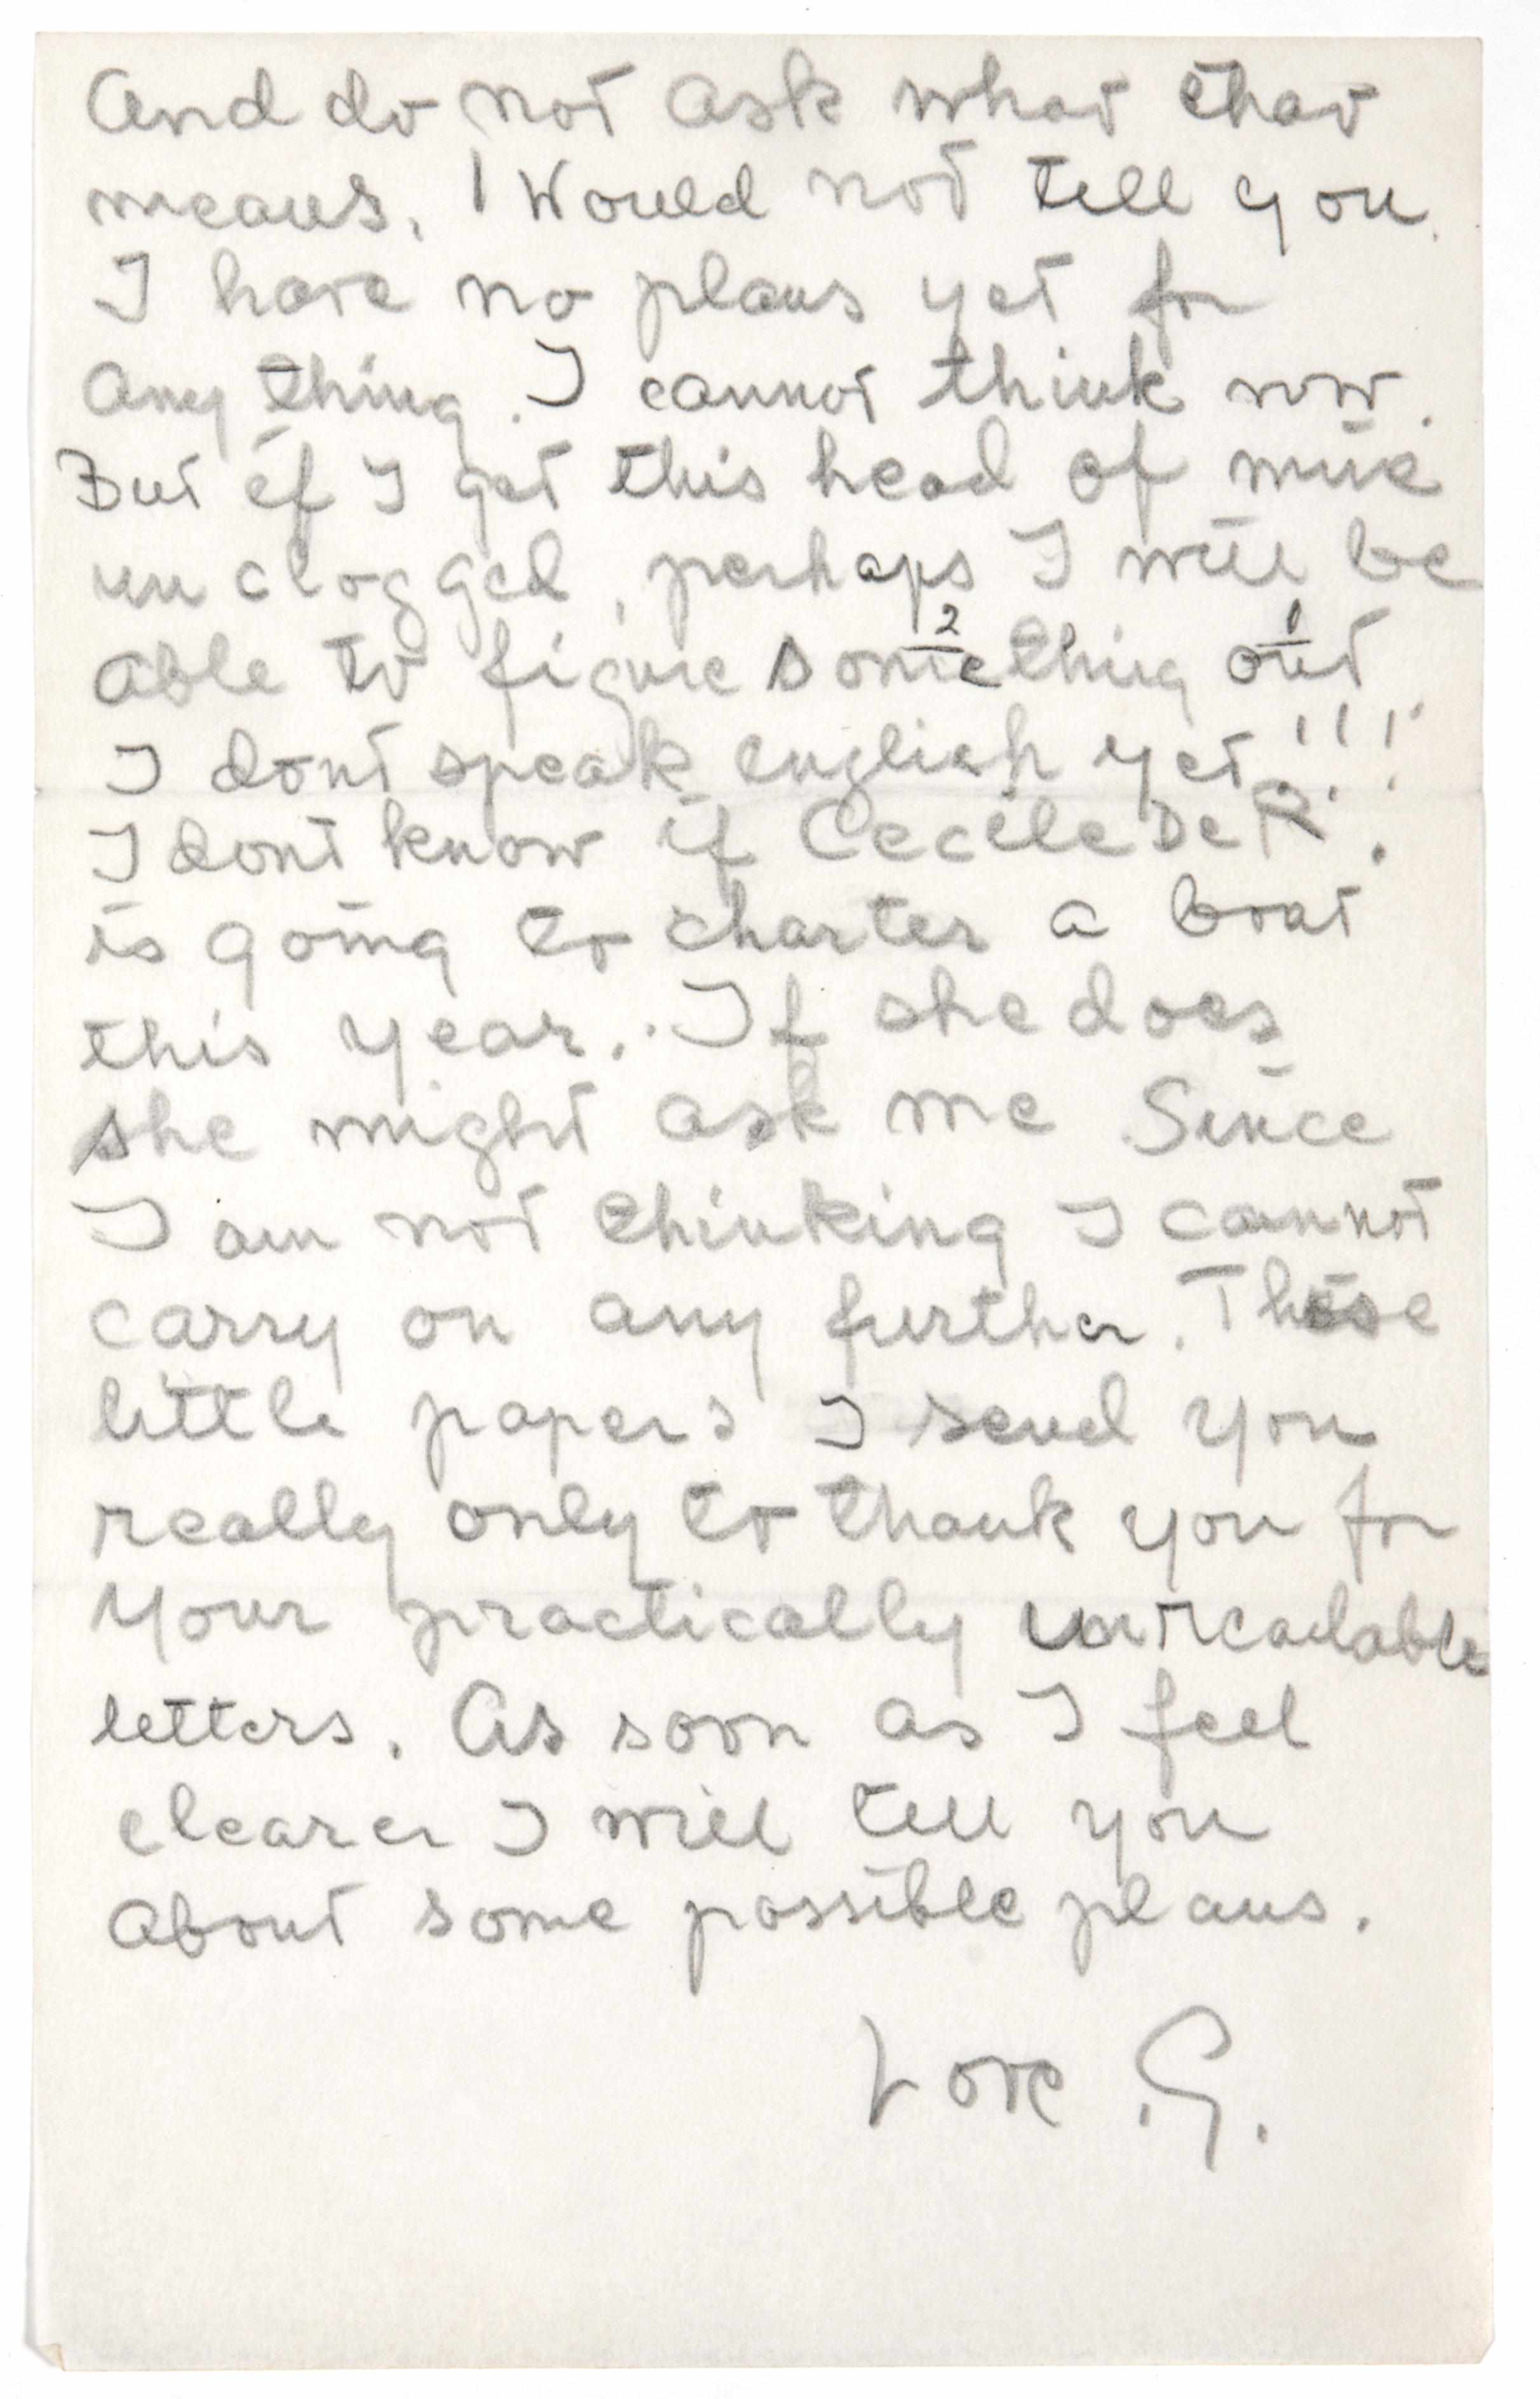 And do not ask what that
means. I Would not tell you.
I have no plans yet for
any thing. I cannot think now.
But if I get this head of mine
un clogged, perhaps I will be
2 1
able to figure something out
I dont speak english yet!!!
I dont know if Cecile De R.
is going to charter a boat
this year.. If she does
she might ask me Since
I am not thinking I cannot
carry on any further. These
little papers I send you
really only to thank you for
your practically unreadable
letters. As soon as I feel
clearer I will tell you
about some possible plans.
Love .G.